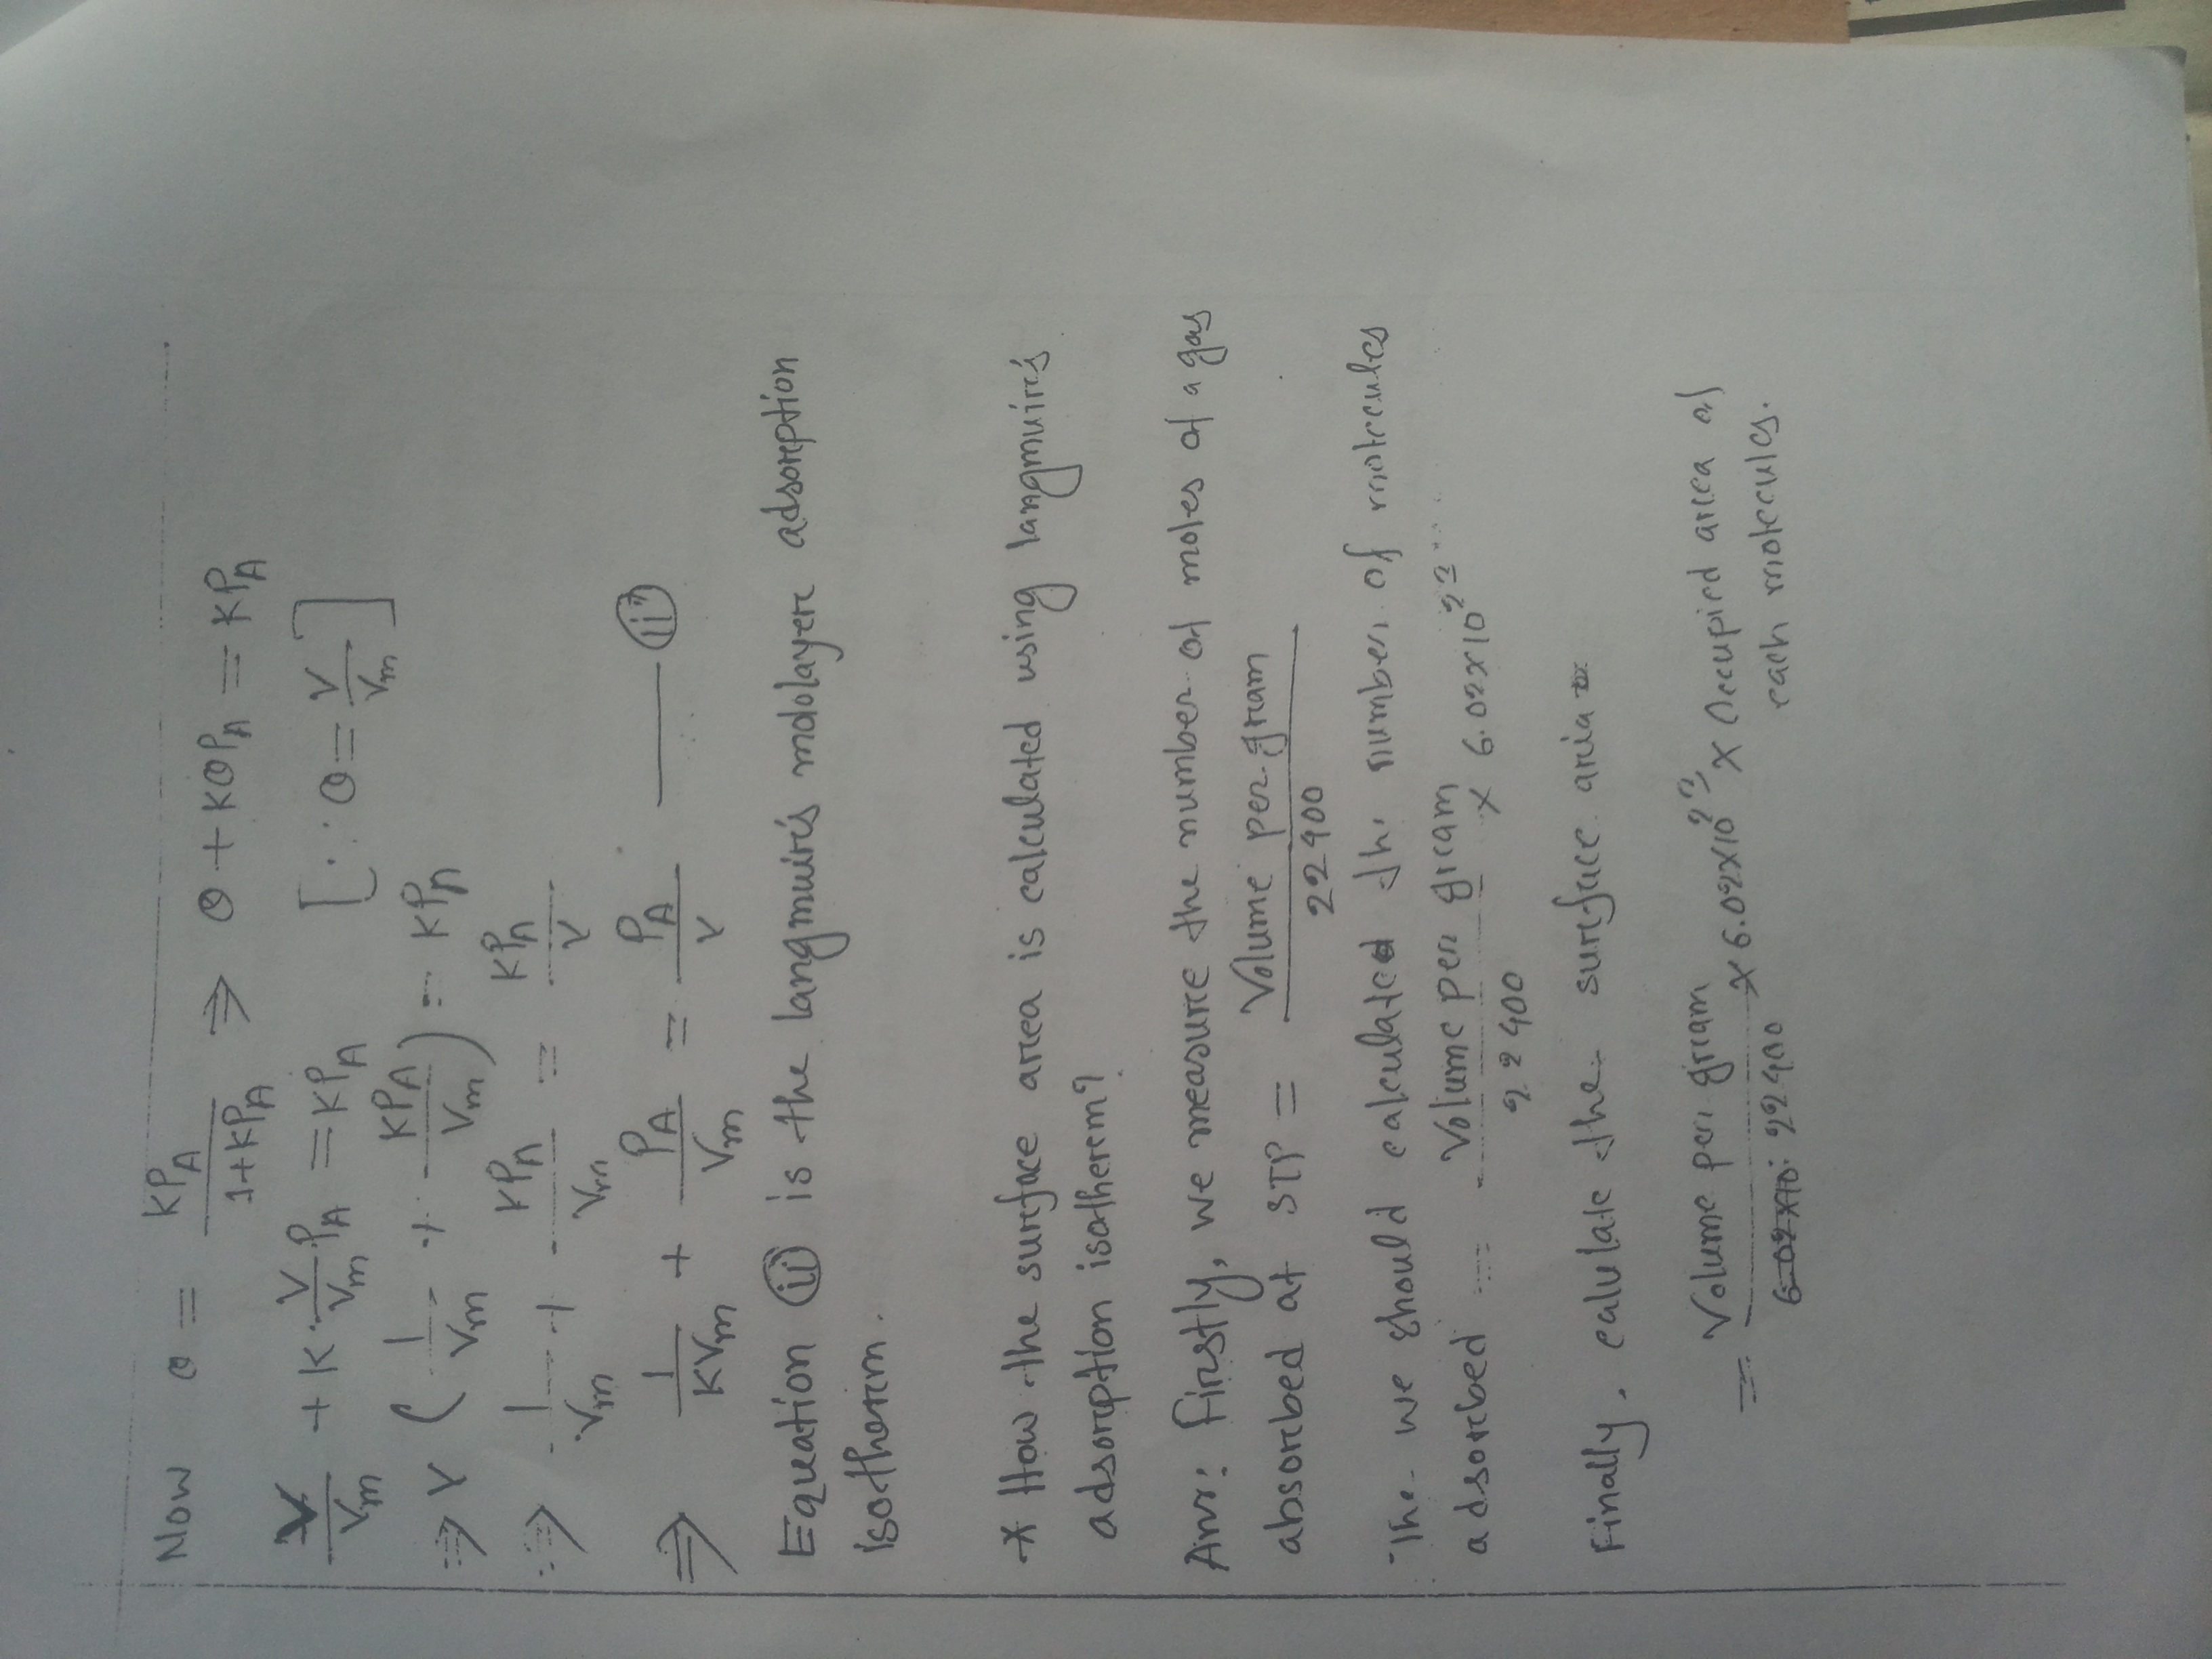 Now θ = KP_A / 1+KP_A ⇒ θ + KθP_A = KP_A
V/V_m + K · V/V_m P_A = KP_A [∵ θ = V/V_m]
⇒ V ( 1/V_m + KP_A/V_m ) = KP_A
⇒ 1/V_m + KP_A/V_m = KP_A/V
⇒ 1/KV_m + P_A/V_m = P_A/V —— (ii)
Equation (ii) is the langmuir's molayer adsorption
isotherm.
* How the surface area is calculated using langmuir's
adsorption isotherm?
Ans: Firstly, we measure the number of moles of a gas
absorbed at STP = Volume per gram / 22400
The we should calculated the number of molecules
adsorbed = Volume per gram / 22400 × 6.02×10^23
Finally, calulate the surface aria
= Volume per gram / 22400 × 6.02×10^23 × Occupied area of
each molecules.